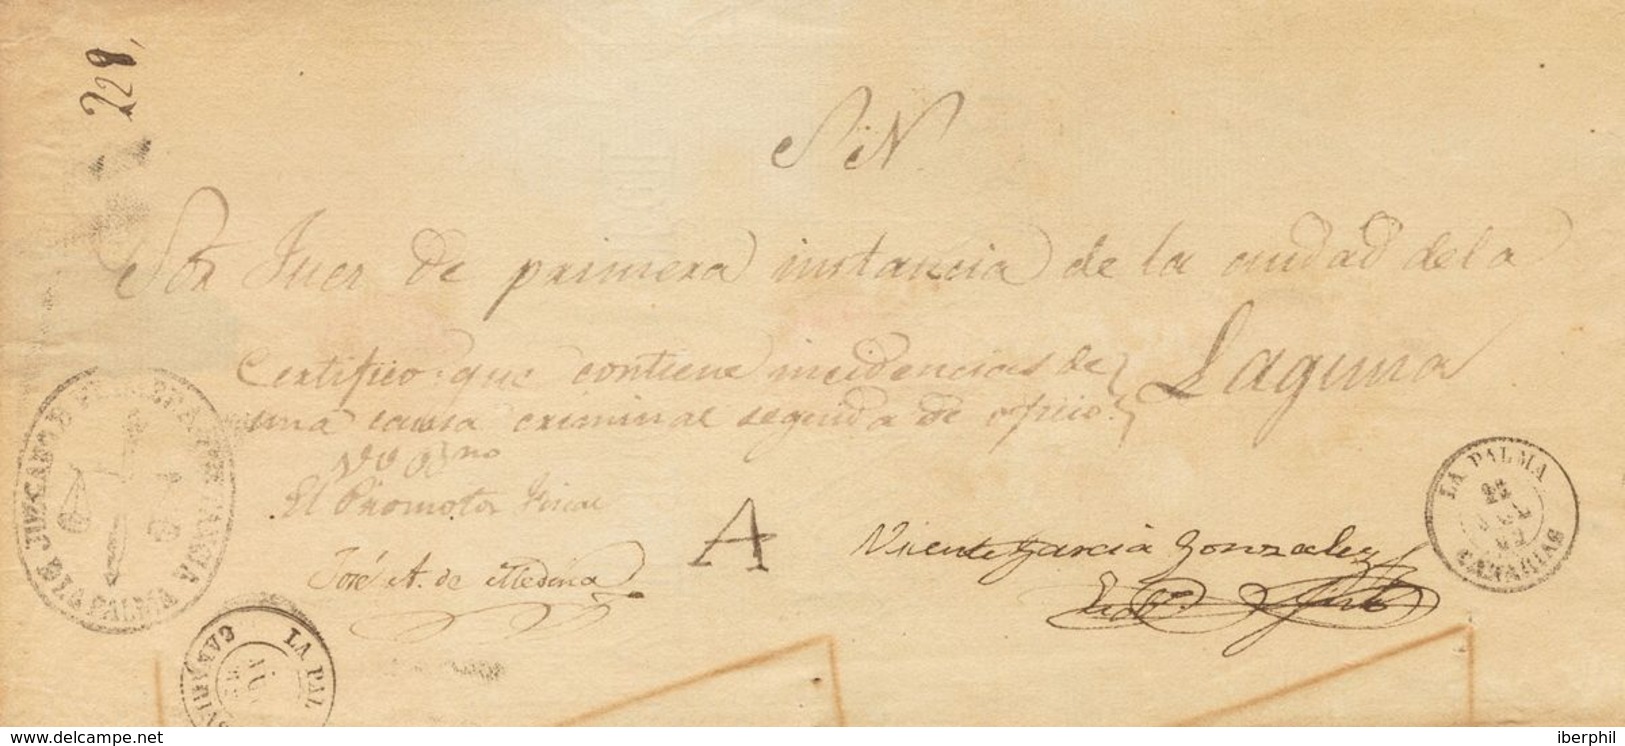 228,
S. N.
Sor Juez de primera instancia de la ciudad de la
Laguna
Certifico: que contiene incidencias de
una causa criminal seguida de oficio.
El Promotor Fiscal
José A. de Medina
A
Vicente Garcia Gonzalez
JUZGADO DE PRIMERA INSTANCIA
DE LA PALMA
LA PALMA
CANARIAS
LA PAL
CANARIAS
www.delcampe.net
iberphil